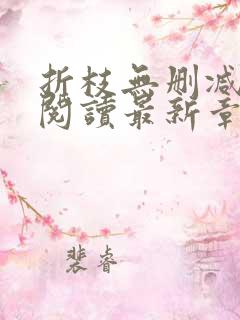 折枝無刪減
閱讀最新章
裴睿